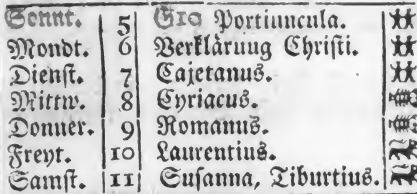 Sonnt. 5 G10 Portiuncula.
Mondt. 6 Verklärung Christi.
Dienst. 7 Cajetanus.
Mittw. 8 Cyriacus.
Donner. 9 Romanus.
Freyt. 10 Laurentius.
Samst. 11 Susanna, Tiburtius.